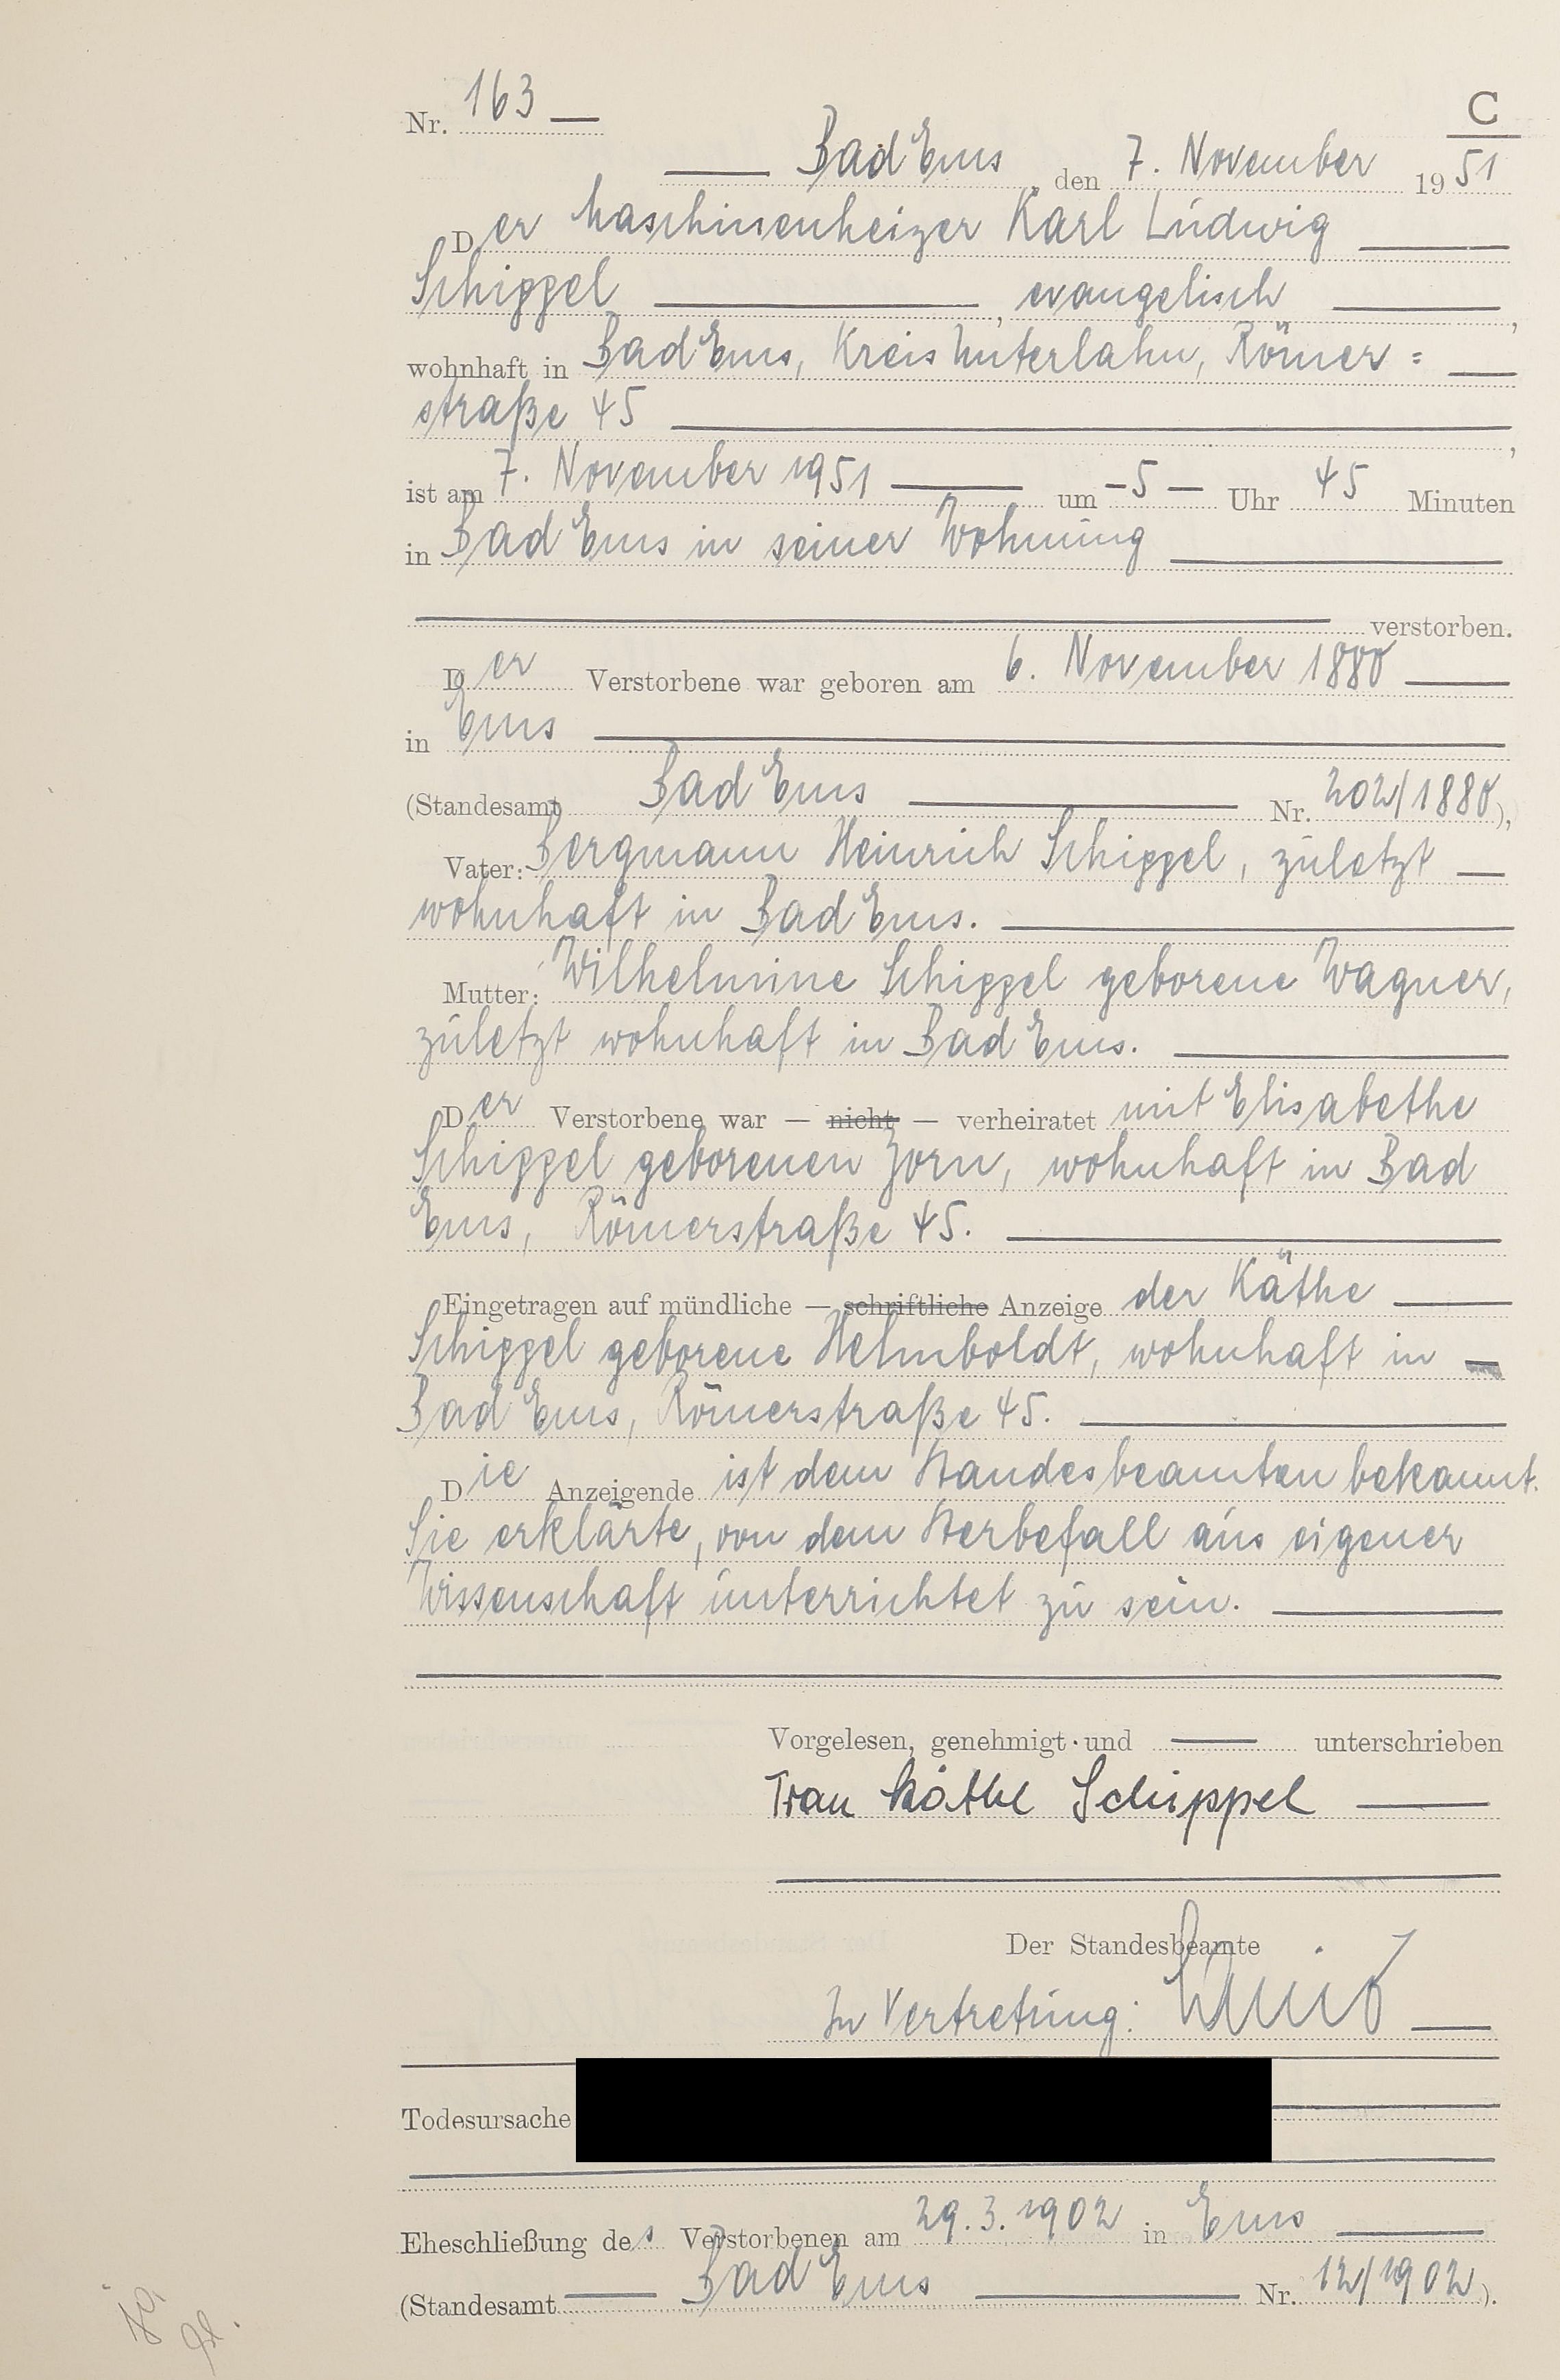 Nr. 163 —
C
— Bad Ems, den 7. November 1951
Der Maschinenheizer Karl Ludwig —
Schippel —, evangelisch —,
wohnhaft in Bad Ems, Kreis Unterlahn, Römer= —
straße 45 —,
ist am 7. November 1951 — um -5- Uhr 45 Minuten
in Bad Ems in seiner Wohnung —
— verstorben.
Der Verstorbene war geboren am 6. November 1880 —
in Ems —
(Standesamt Bad Ems — Nr. 202/1880),
Vater: Bergmann Heinrich Schippel, zuletzt —
wohnhaft in Bad Ems. —
Mutter: Wilhelmine Schippel geborene Wagner,
zuletzt wohnhaft in Bad Ems. —
Der Verstorbene war — nicht — verheiratet mit Elisabethe
Schippel geborenen Zorn, wohnhaft in Bad
Ems, Römerstraße 45. —
Eingetragen auf mündliche — schriftliche Anzeige der Käthe —
Schippel geborene Helmboldt, wohnhaft in —
Bad Ems, Römerstraße 45. —
Die Anzeigende ist dem Standesbeamten bekannt.
Sie erklärte, von dem Sterbefall aus eigener
Wissenschaft unterrichtet zu sein. —
Vorgelesen, genehmigt und — unterschrieben
Frau Käthe Schippel —
Der Standesbeamte
In Vertretung: —
Todesursache
Eheschließung des Verstorbenen am 29.3.1902 in Ems —
(Standesamt — Bad Ems — Nr. 12/1902).